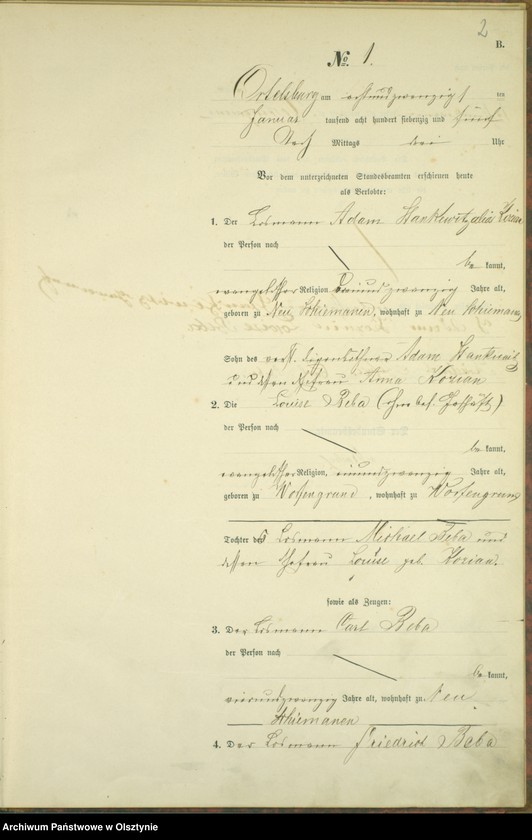 2
B.
No. 1.
Ortelsburg am einundzwanzigsten
Januar tausend acht hundert siebenzig und fünf
Nach Mittags drei Uhr
Vor dem unterzeichneten Standesbeamten erschienen heute
als Verlobte:
1. Der Losmann Adam Hankewitz alias Korian
der Person nach
be kannt,
evangelischer Religion, dreiundzwanzig Jahre alt,
geboren zu Neu Schiemanen, wohnhaft zu Neu Schiemanen
Sohn des verst. Eigenkäthner Adam
und dessen Ehefrau Anna Korian
2. Die Louise Beba
der Person nach
be kannt,
evangelischer Religion, einundzwanzig Jahre alt,
geboren zu, wohnhaft zu
Tochter des Losmann Michael Beba und
dessen Ehefrau Louise geb. Korian.
sowie als Zeugen:
3. Der Losmann Carl Beba
der Person nach
be kannt,
vierundzwanzig Jahre alt, wohnhaft zu Neu
Schiemanen
4. Der Losmann Friedrich Beba
Archiwum Państwowe w Olsztynie